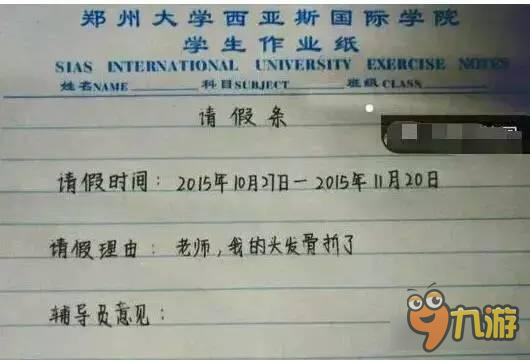 郑州大学西亚斯国际学院
学生作业纸
SIAS INTERNATIONAL UNIVERSITY EXERCISE NOTES
姓名NAME 科目SUBJECT 班级CLASS
请假条
请假时间：2015年10月27日—2015年11月20日
请假理由：老师，我的头发骨折了
辅导员意见：
九游